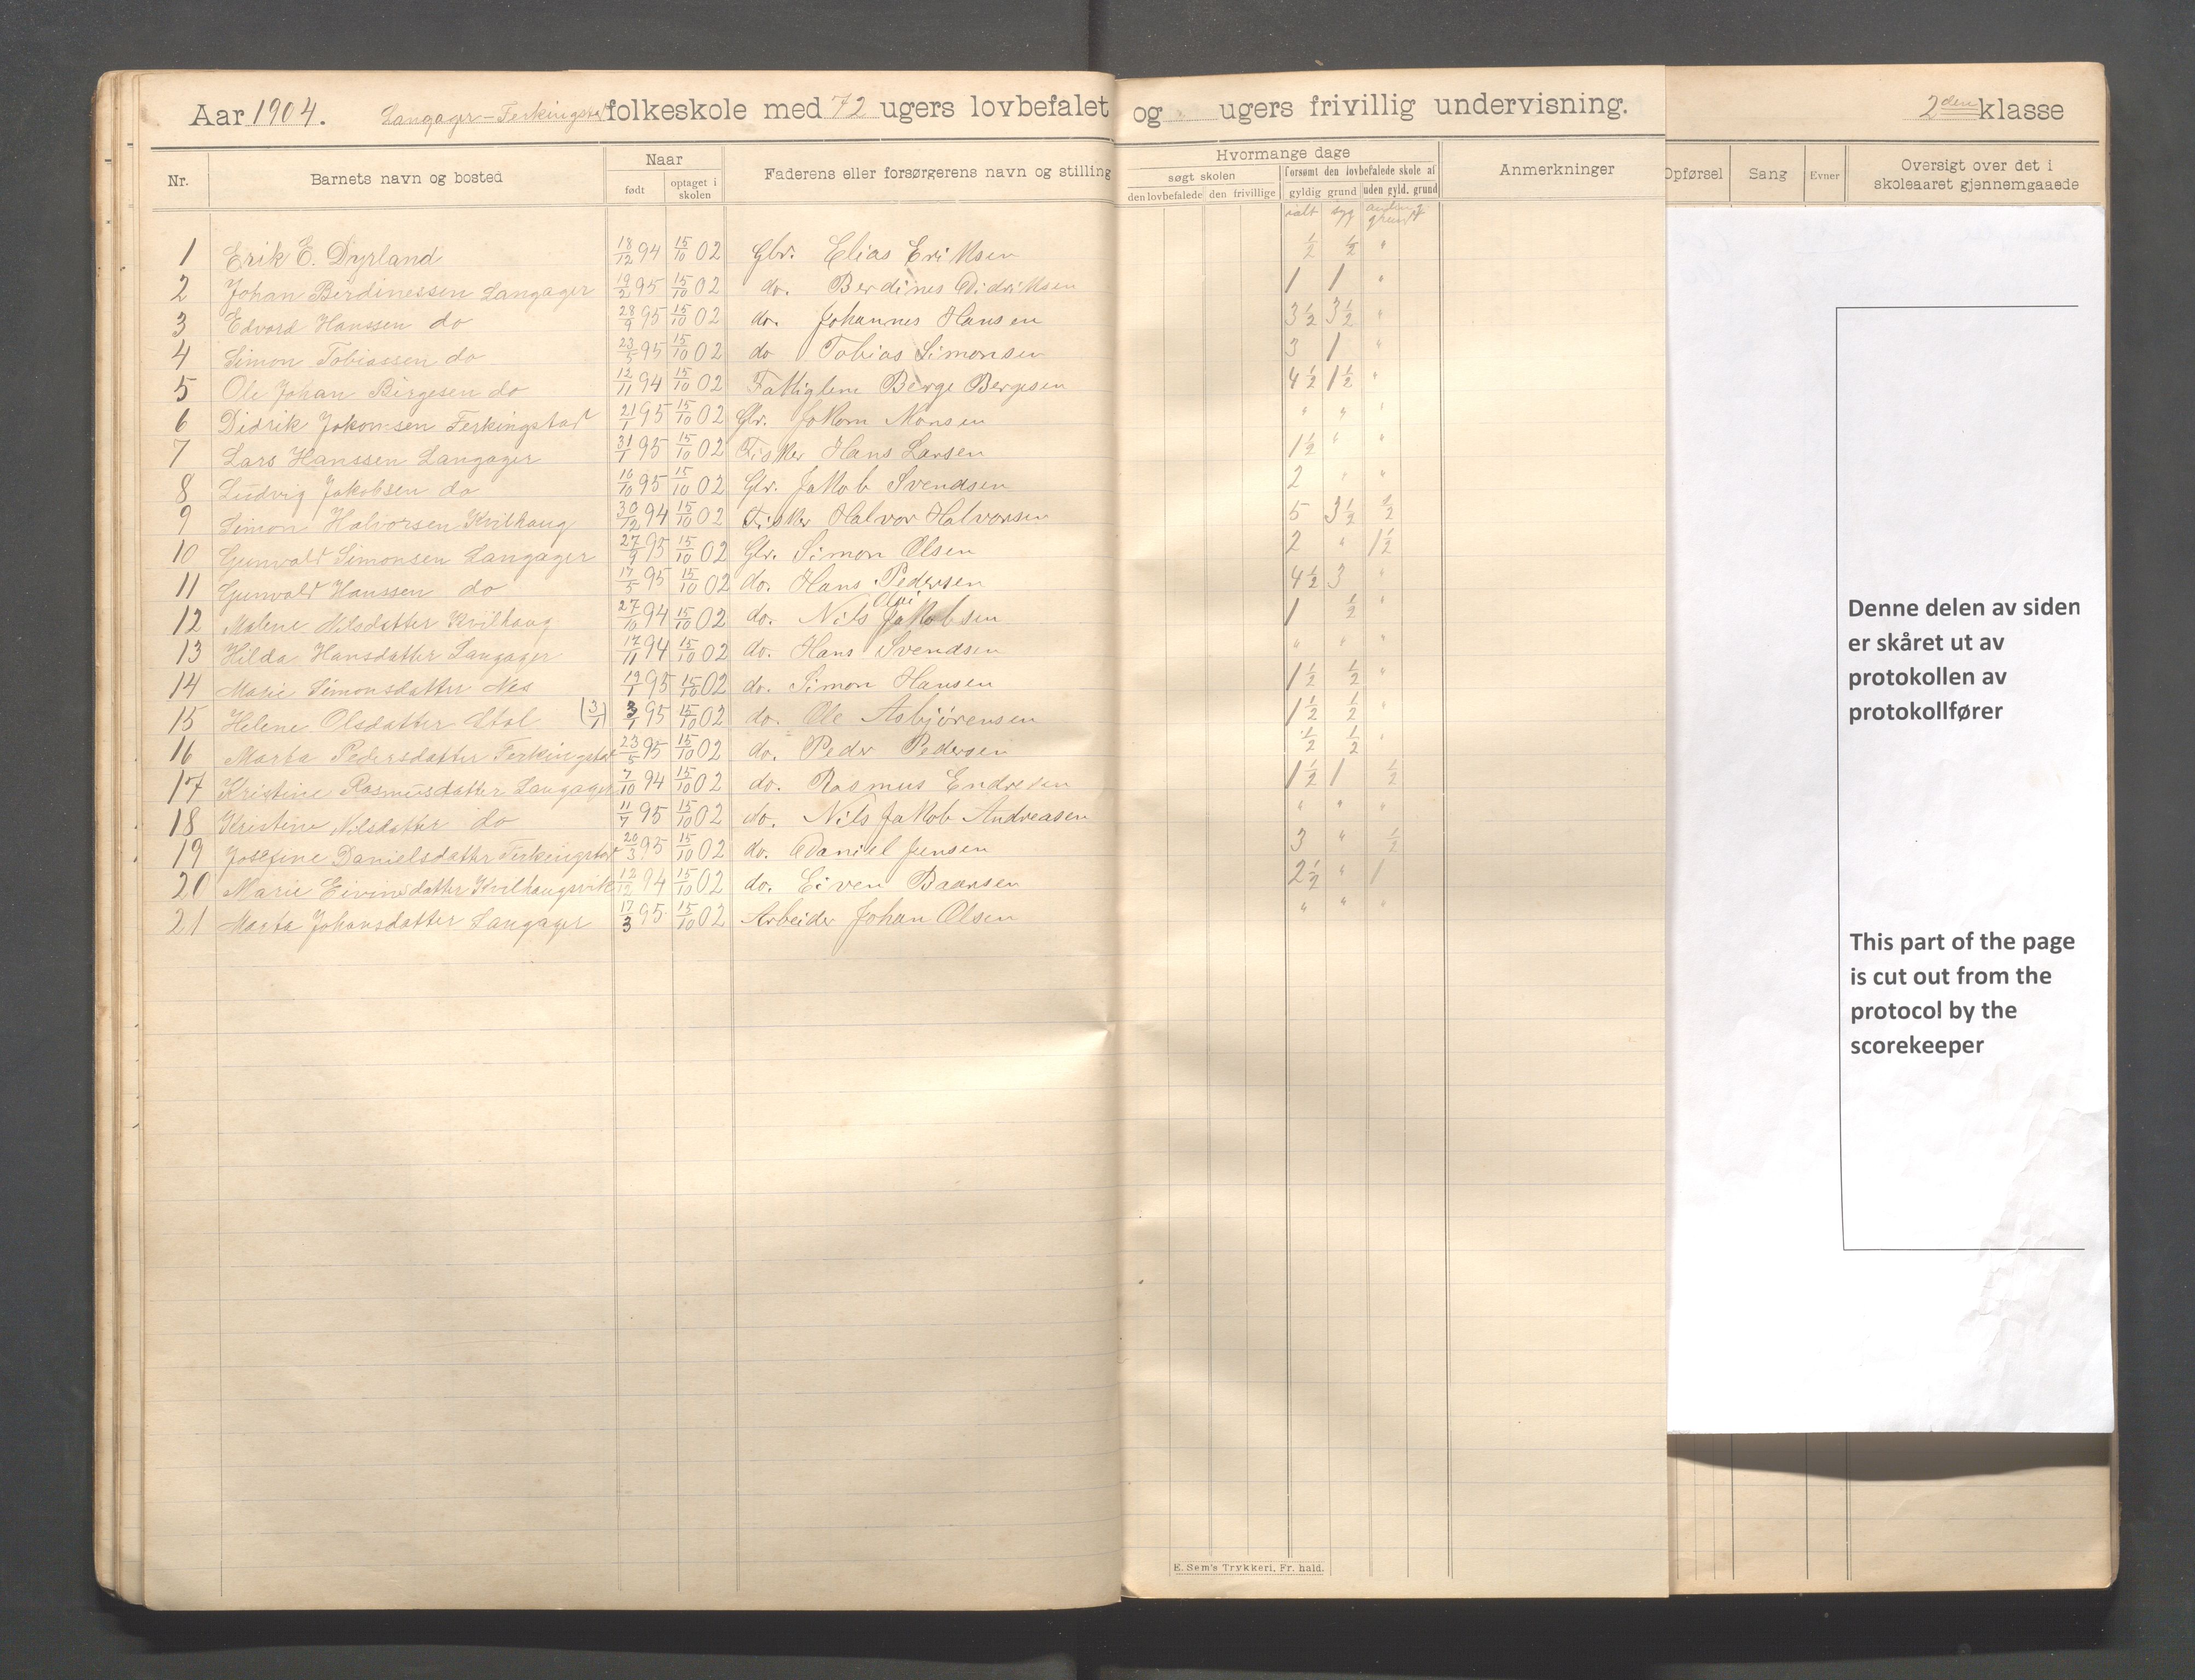 Aar 1904. Langager-Ferkingstad folkeskole med 72 ugers lovbefalet og ugers frivillig undervisning. 2den klasse
Nr. Barnets navn og bosted Naar født optaget i skolen Faderens eller forsørgerens navn og stilling Hvormange dage søgt skolen den lovbefalede den frivillige forsømt den lovbefalede skole af gyldig grund uden gyld. grund Anmerkninger Opførsel Sang Evner Oversigt over det i skoleaaret gjennemgaaede
ialt syg anden g. grund
1 Erik E. Dyrland 18/12 94 15/10 02 Gbr. Elias Eriksen 1/2 1/2 "
2 Johan Berdinessen Langager 19/2 95 15/10 02 do. Berdines Didriksen 1 1 "
3 Edvard Hanssen do 28/9 95 15/10 02 do. Johannes Hansen 3 1/2 3 1/2 "
4 Simon Tobiassen do 23/5 95 15/10 02 do Tobias Simonsen 3 1 "
5 Ole Johan Birgesen do 12/11 94 15/10 02 Fattiglem Berge Bergesen 4 1/2 1 1/2 "
6 Didrik Jokomsen Ferkingstad 21/1 95 15/10 02 Gbr. Jokom Monsen " " "
7 Lars Hanssen Langager 31/1 95 15/10 02 Fisker Hans Larsen 1 1/2 " "
8 Ludvig Jakobsen do 16/10 95 15/10 02 Gbr. Jakob Svendsen 2 " "
9 Simon Halvorsen Kvilhaug 30/12 94 15/10 02 Fisker Halvor Halvorsen 5 3 1/2 1/2
10 Gunvald Simonsen Langager 27/9 95 15/10 02 Gbr. Simon Olsen 2 " 1 1/2
11 Gunvald Hanssen do 17/5 95 15/10 02 do. Hans Pedersen 4 1/2 3 "
12 Malene Nilsdatter Kvilhaug 27/10 94 15/10 02 do. Nils Olai Jakobsen 1 1/2 "
13 Hilda Hansdatter Langager 17/11 94 15/10 02 do. Hans Svendsen " " "
14 Marie Simonsdatter Nes 19/1 95 15/10 02 do. Simon Hansen 1 1/2 1/2 "
15 Helene Olsdatter Stol (3/1) 3/1 95 15/10 02 do. Ole Asbjørensen 1 1/2 1/2 "
16 Marta Pedersdatter Ferkingstad 23/5 95 15/10 02 do. Peder Pedersen 1/2 1/2 "
17 Kristine Rasmusdatter Langager 7/10 94 15/10 02 do. Rasmus Endresen 1 1/2 1 1/2
18 Kristine Nilsdatter do 11/7 95 15/10 02 do. Nils Jakob Andreasen " " "
19 Josefine Danielsdatter Ferkingstad 20/3 95 15/10 02 do. Daniel Jensen 3 " 1/2
20 Marie Eivindsdatter Kvilhaugsvik 12/12 94 15/10 02 do. Eiven Baarsen 2 1/2 " 1
21 Marta Johansdatter Langager 17/3 95 15/10 02 Arbeider Johan Olsen " " "
E. Sem's Trykkeri, Fr. hald.
Denne delen av siden
er skåret ut av
protokollen av
protokollfører
This part of the page
is cut out from the
protocol by the
scorekeeper